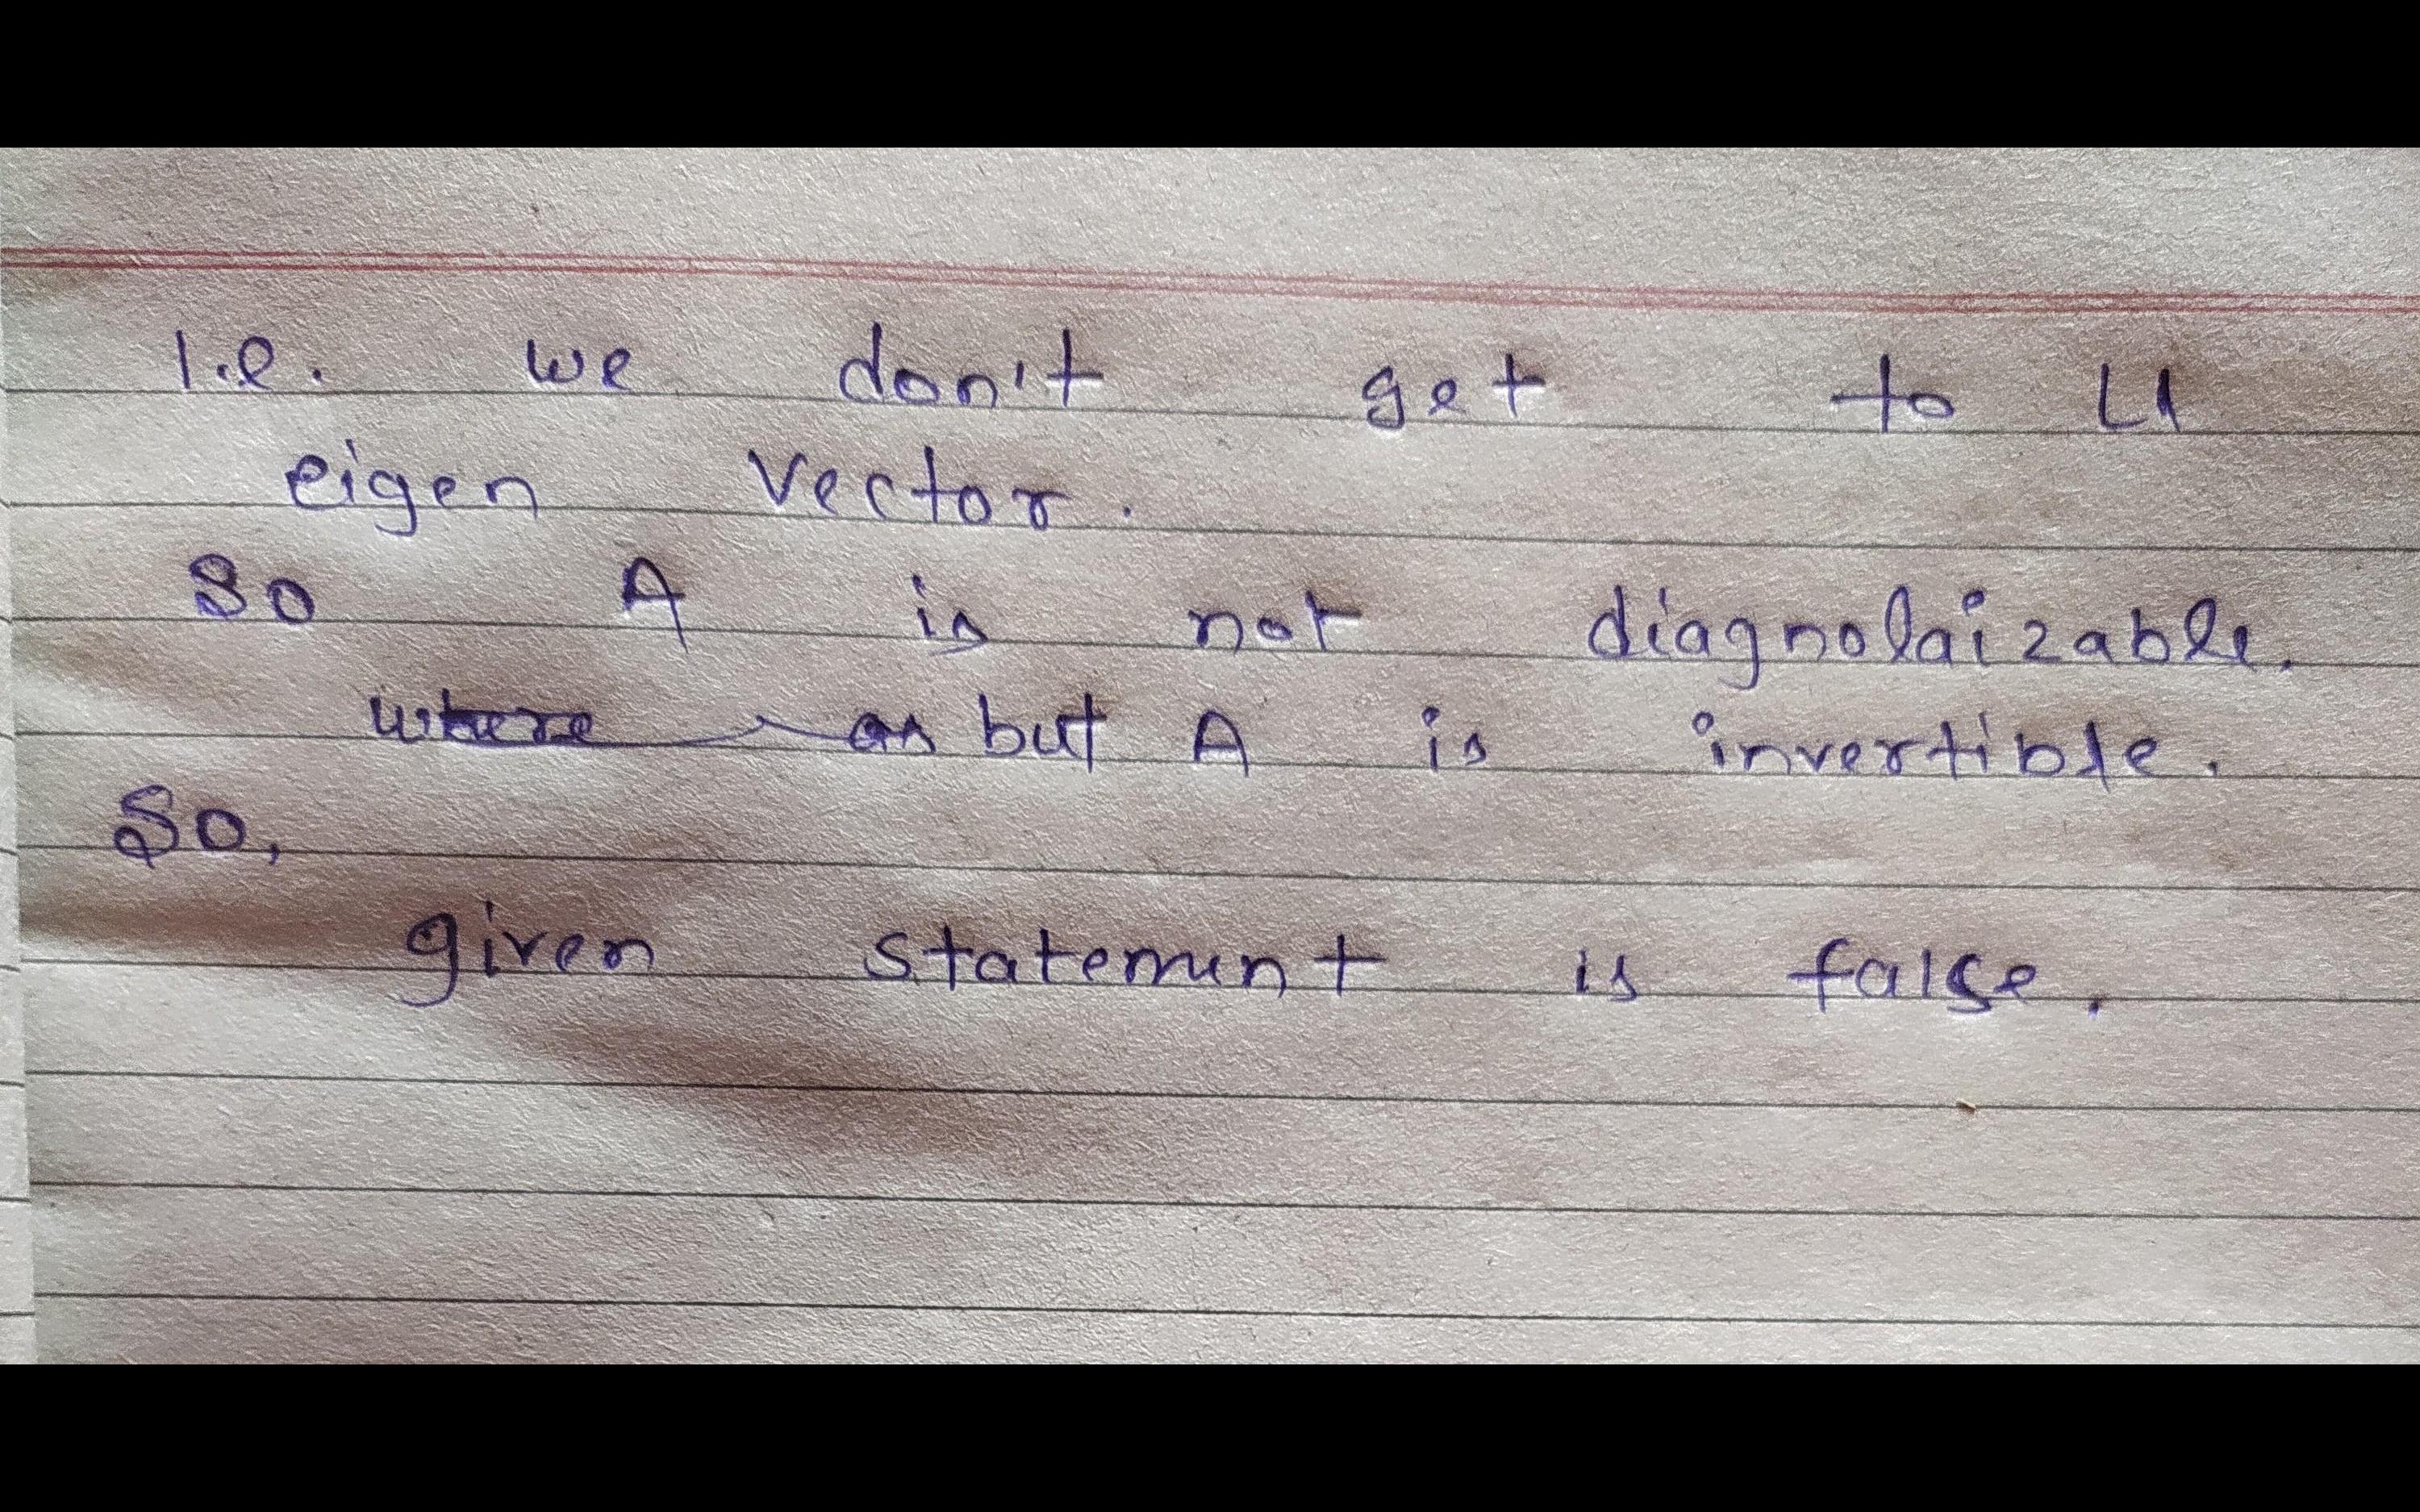 I.e. we don't get to LI
eigen vector.
So A is not diagnolaizable.
where as but A is invertible.
So,
given statement is false.